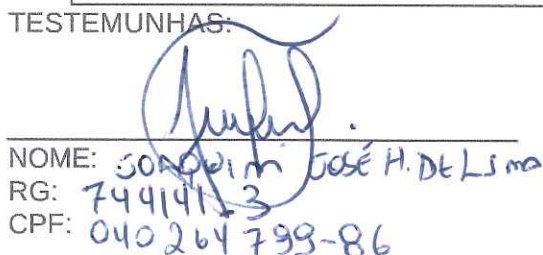 TESTEMUNHAS:
NOME: JOAQUIM JOSÉ H. DE LIMA
RG: 7441411-3
CPF: 040264799-86